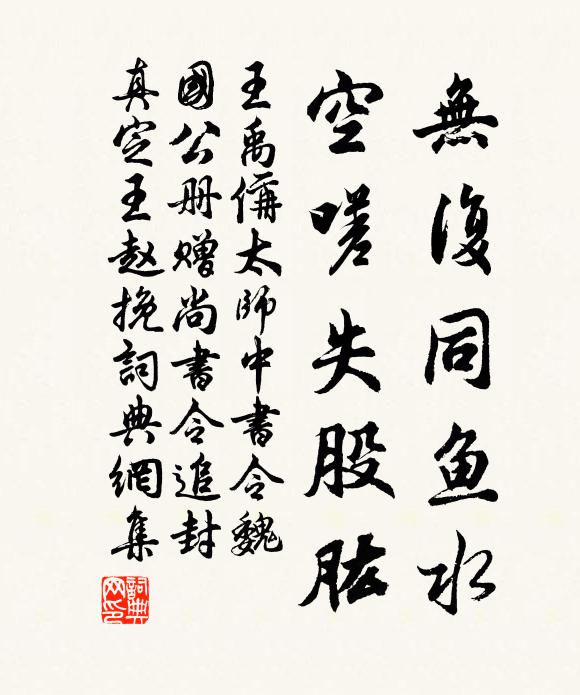 無復同鱼水
空嗟失股肱
王禹偁太師中書令魏
國公册赠尚書令追封
真定王赵挽詞典網集
詞典网印